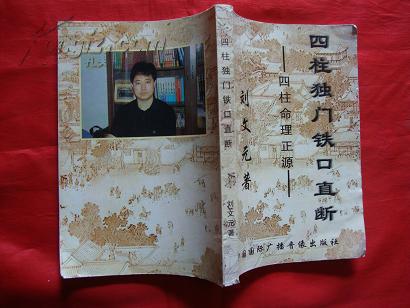 四柱独门铁口直断
——四柱命理正源——
刘文元著
国际广播音像出版社
四柱独门铁口直断
刘文元著